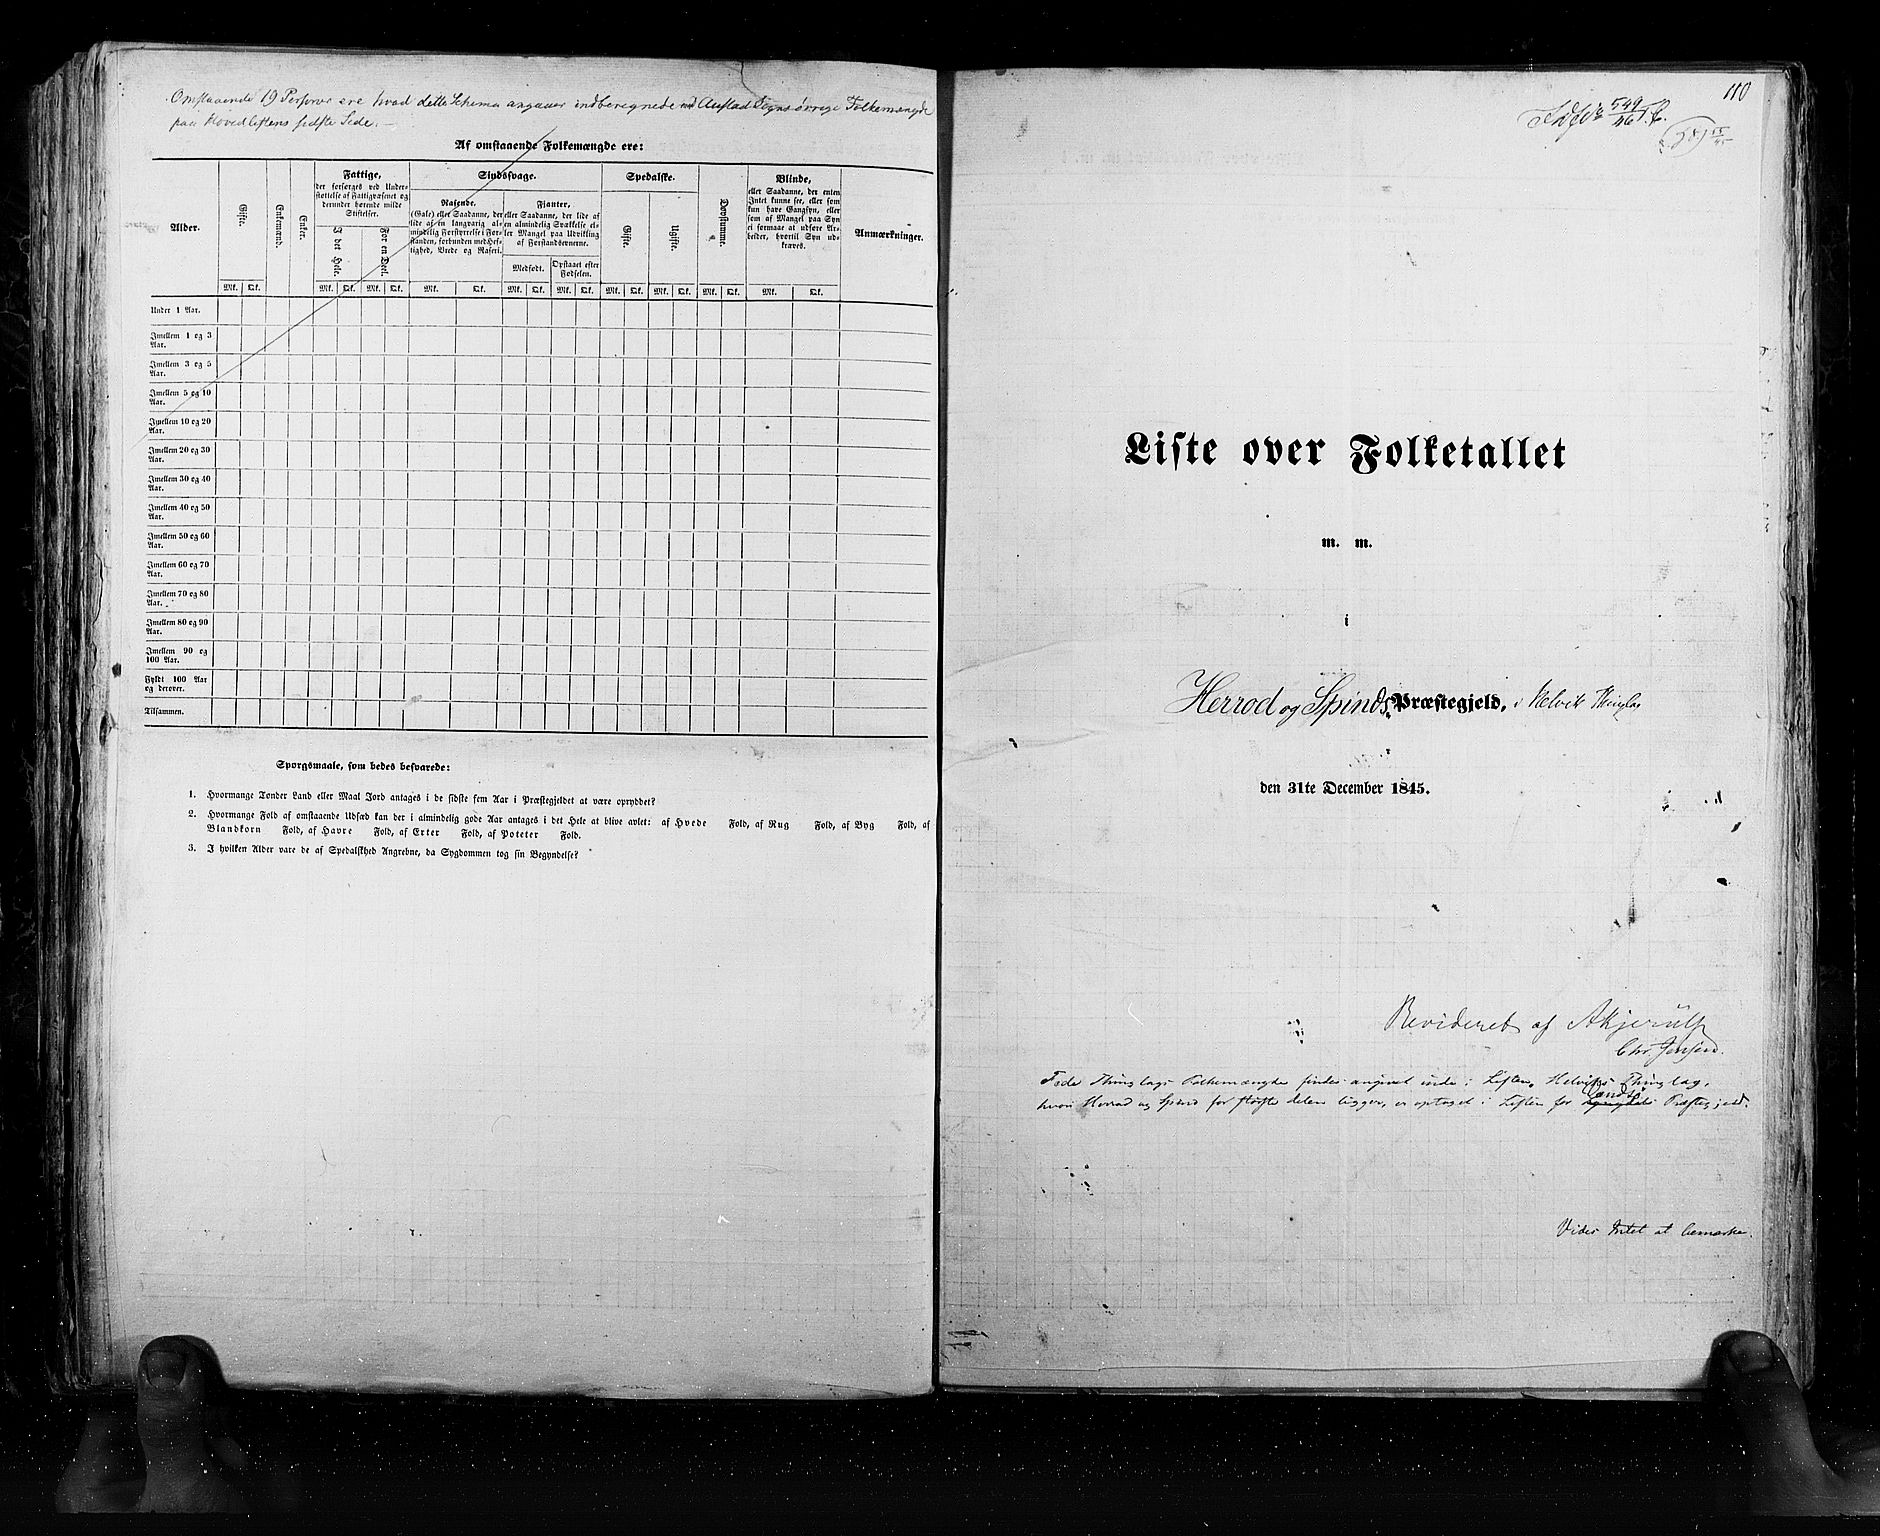 Omstaaende 19 Personer ere hvad dette Schema angaaer indberegnede ved Austad Sogns øvrige Folkemængde
paa Hovedlistens sidste Side.
Af omstaaende Folkemængde ere:
Alder.
Gifte.
Enkemænd.
Enker.
Fattige,
der forsørges ved Under-
støttelse af Fattigvæsenet og
derunder hørende milde
Stiftelser.
I det Hele.
For en Deel.
Sindssvage.
Rasende.
(Gale) eller Saadanne, der
lide af en langvarig al-
mindelig Forstyrrelse i For-
standen, forbunden med Hef-
tighed, Vrede og Raseri.
Fjanter,
eller Saadanne, der lide af
en almindelig Svækkelse el-
ler Mangel paa Udvikling
af Forstandsevnerne.
Medfødt.
Opstaaet efter
Fødselen.
Spedalske.
Gifte.
Ugifte.
Døvstumme.
Blinde,
eller Saadanne, der enten
Intet kunne see, eller som
kun have Gangsyn, eller
som af Mangel paa Syn
ei formaae at udføre Ar-
beider, hvortil Syn ud-
kræves.
Anmærkninger.
Mk. Qk. Mk. Qk. Mk. Qk. Mk. Qk. Mk. Qk. Mk. Qk. Mk. Qk. Mk. Qk. Mk. Qk. Mk. Qk.
Under 1 Aar.
Imellem 1 og 3
Aar.
Imellem 3 og 5
Aar.
Imellem 5 og 10
Aar.
Imellem 10 og 20
Aar.
Imellem 20 og 30
Aar.
Imellem 30 og 40
Aar.
Imellem 40 og 50
Aar.
Imellem 50 og 60
Aar.
Imellem 60 og 70
Aar.
Imellem 70 og 80
Aar.
Imellem 80 og 90
Aar.
Imellem 90 og
100 Aar.
Fyldt 100 Aar
og derover.
Tilsammen.
Spørgsmaale, som bedes besvarede:
1. Hvormange Tønder Land eller Maal Jord antages i de sidste fem Aar i Præstegjeldet at være opryddet?
2. Hvormange Fold af omstaaende Udsæd kan der i almindelig gode Aar antages i det Hele at blive avlet: af Hvede Fold, af Rug Fold, af Byg Fold, af
Blandkorn Fold, af Havre Fold, af Erter Fold, af Poteter Fold.
3. I hvilken Alder vare de af Spedalskhed Angrebne, da Sygdommen tog sin Begyndelse?
110
549/46
Liste over Folketallet
m. m.
i
Herrod og Spinds Præstegjeld, i Helvik Thinglag
den 31te December 1845.
Revideret af AKjerulf
Chr Jensen.
Thinglags Folkemængde findes angivet inde i Listen. Helviks Thinglag,
hvori Herrad og Spind for største delen ligger, er optaget i Listen for Præstegjeld.
Videre Intet at bemærke.